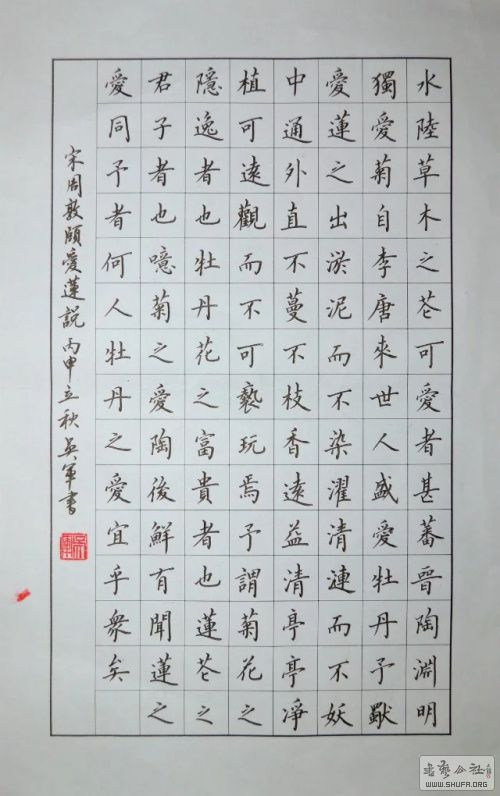 水陸草木之芲可愛者甚蕃晉陶淵明
獨愛菊自李唐來世人盛愛牡丹予獸
愛蓮之出淤泥而不染濯清漣而不妖
中通外直不蔓不枝香遠益清亭亭凈
植可遠觀而不可褻玩焉予謂菊花之
隱逸者也牡丹花之富貴者也蓮芲之
君子者也噫菊之愛陶後鮮有聞蓮之
愛同予者何人牡丹之愛宜乎衆矣
宋周敦頤愛蓮説丙申立秋吳軍書
WWW.SHUFA.ORG